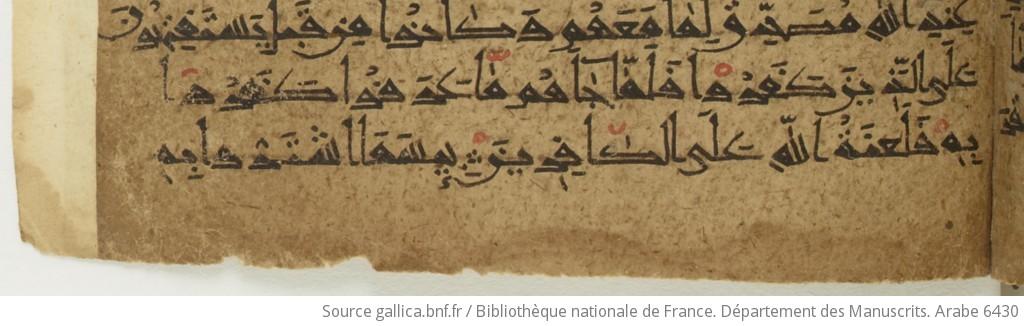 عند الله مصدق لما معهم وكانوا من قبل يستفتحون
على الذين كفروا فلما جاهم ما عرفوا كفروا
به فلعنة الله على الكافرين بيسما اشتروا به
Source gallica.bnf.fr / Bibliothèque nationale de France. Département des Manuscrits. Arabe 6430